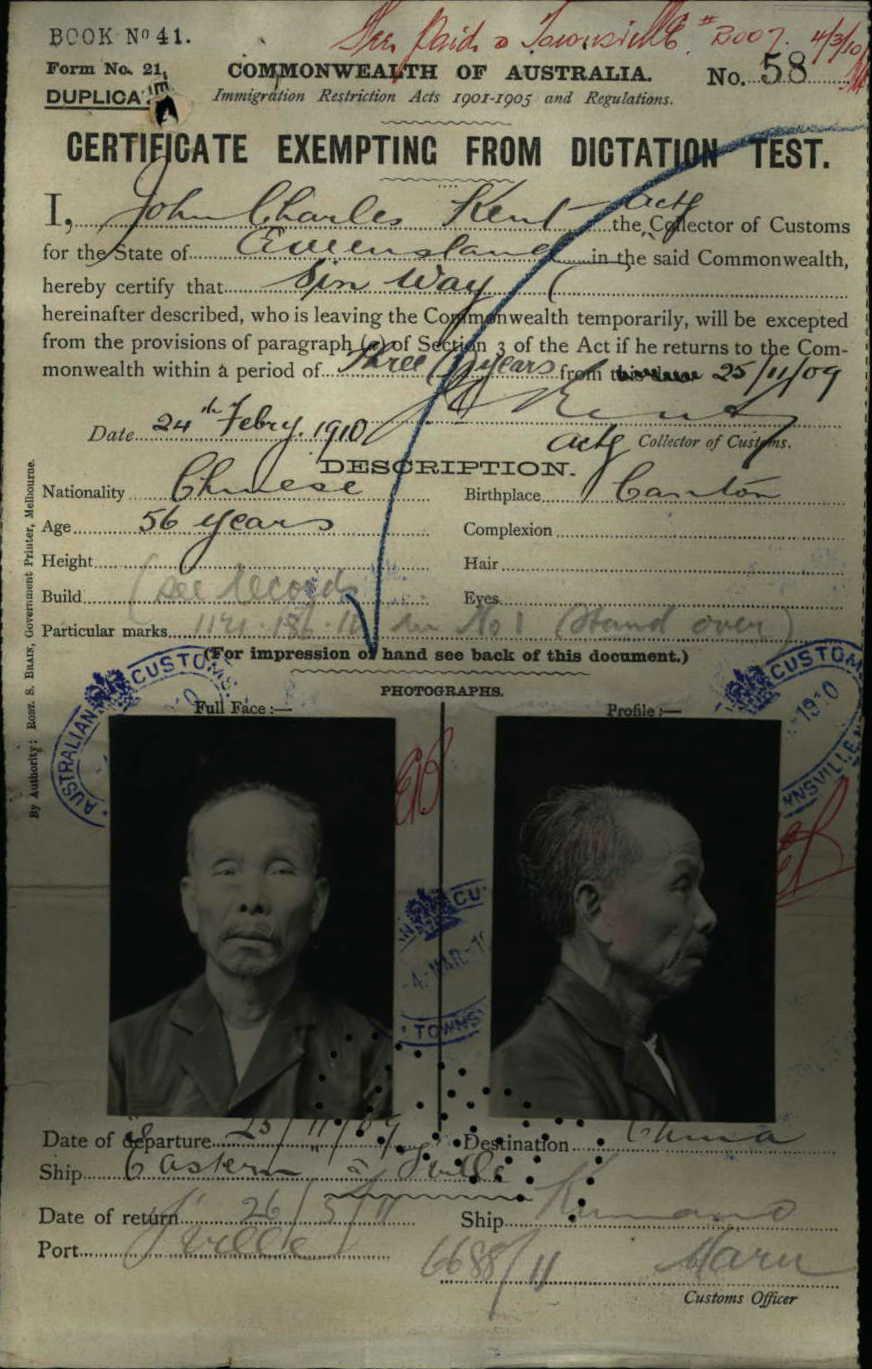 BOOK Nº 41.
Fee Paid Townsville # 2007. 4/3/10
Form No. 21.
COMMONWEALTH OF AUSTRALIA.
No. 58
DUPLICATE
Immigration Restriction Acts 1901-1905 and Regulations.
CERTIFICATE EXEMPTING FROM DICTATION TEST.
I, John Charles Kent Actg the Collector of Customs
for the State of Queensland in the said Commonwealth,
hereby certify that Sin Way
hereinafter described, who is leaving the Commonwealth temporarily, will be excepted
from the provisions of paragraph (a) of Section 3 of the Act if he returns to the Com-
monwealth within a period of Three years from this date 25/11/09
Date 24th Febry. 1910 Kent
Actg Collector of Customs.
DESCRIPTION.
Nationality Chinese Birthplace Canton
Age 56 years Complexion
Height Hair
Build (See Records Eyes
Particular marks No 1 (Hand over)
(For impression of hand see back of this document.)
PHOTOGRAPHS.
Full Face :— Profile :—
AUSTRALIAN CUSTOMS
CUSTOMS 1910 TOWNSVILLE
CU
4-MAR-1
TOWNS
Date of departure 25/11/09 Destination China
Ship Eastern Tville
Date of return 26/5/11 Ship Kumano
Port Tville 6688/11 Maru
Customs Officer
By Authority: ROBT. S. BRAIN, Government Printer, Melbourne.